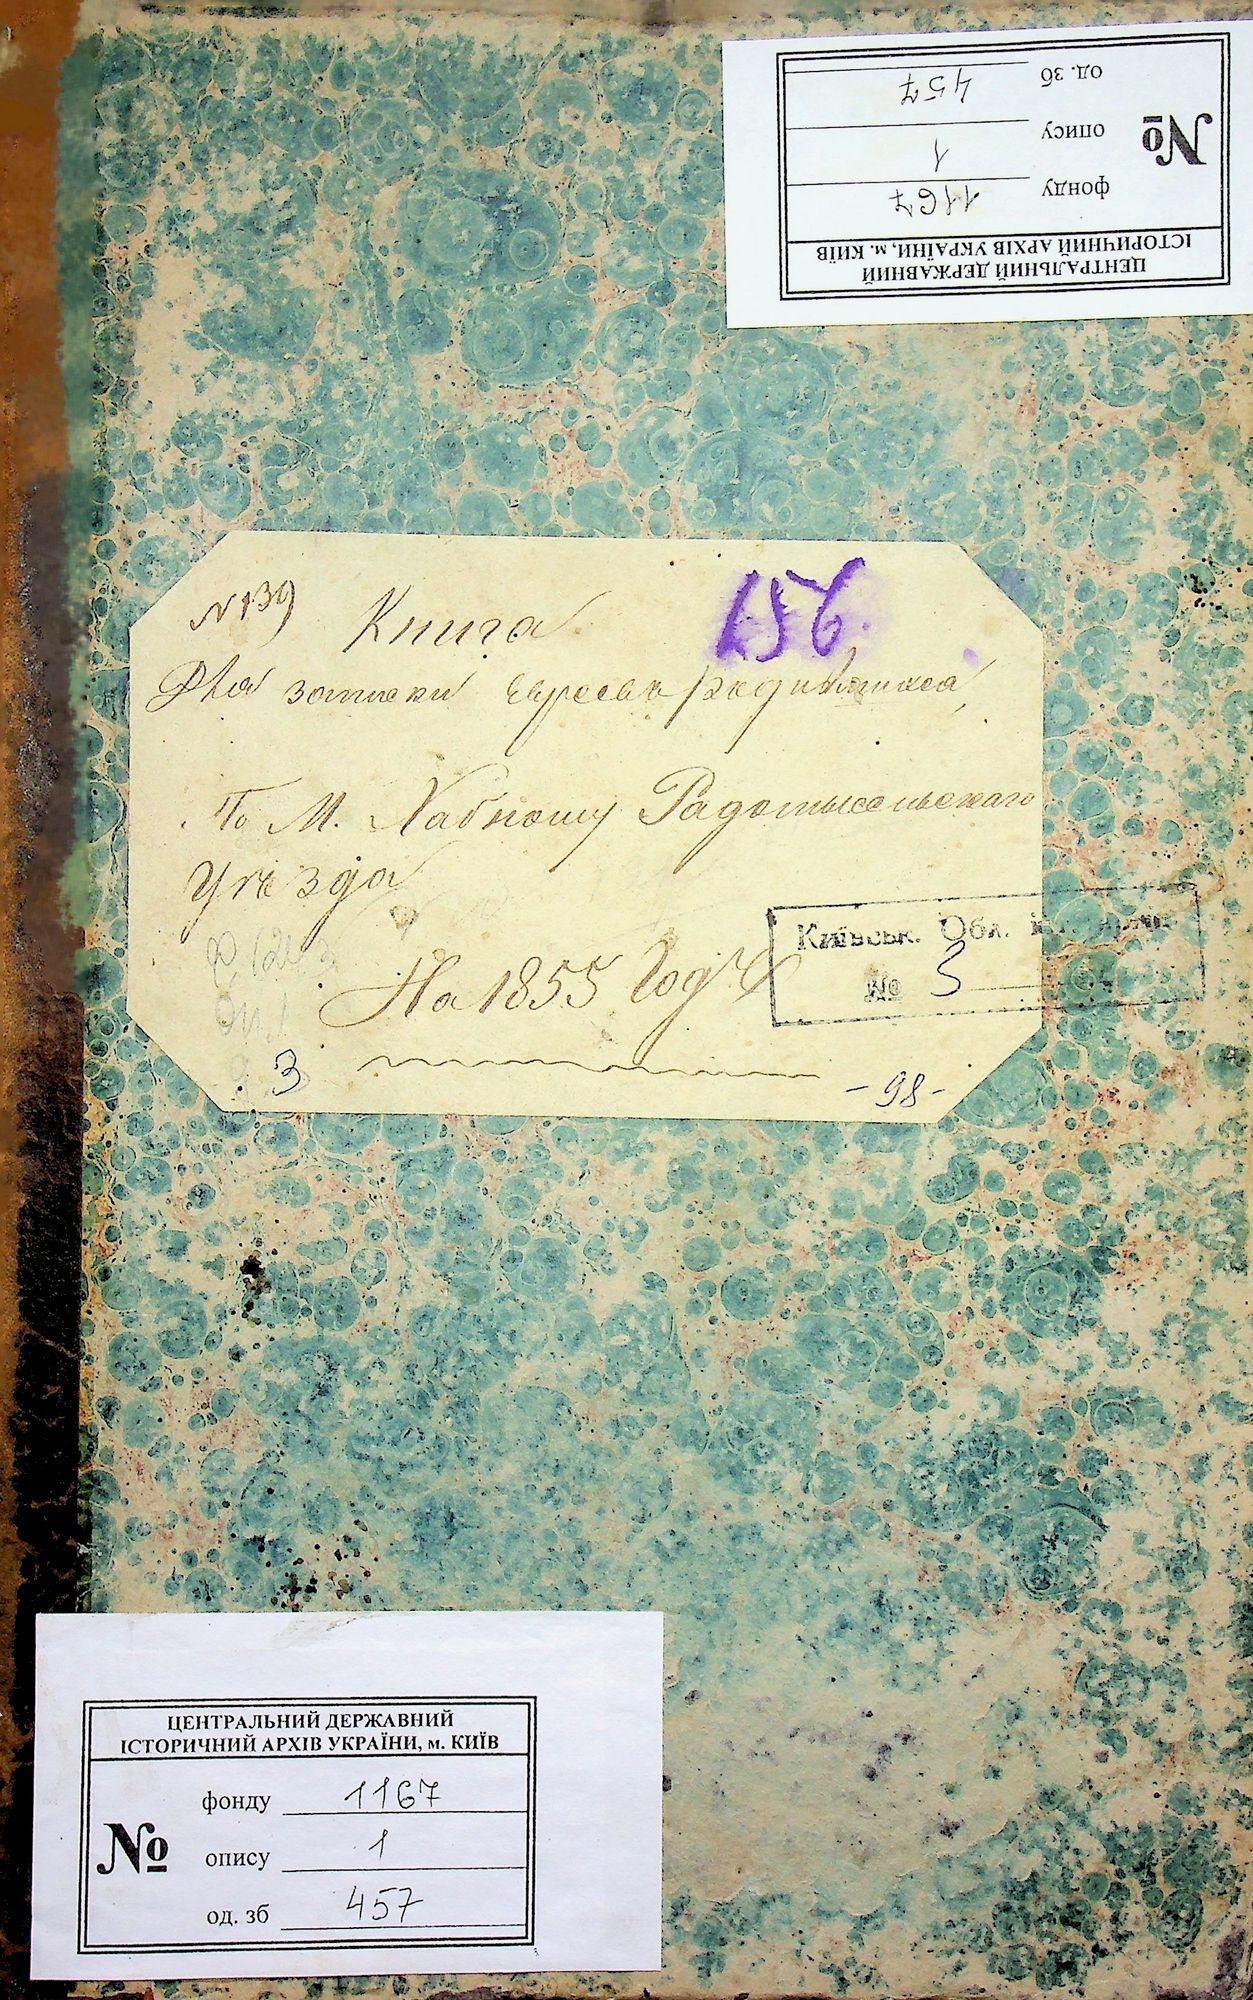 ЦЕНТРАЛЬНИЙ ДЕРЖАВНИЙ
ІСТОРИЧНИЙ АРХІВ УКРАЇНИ, м. КИЇВ
№
фонду 1167
опису 1
од. зб 457
N 139
Книга
156.
Для записки евреевъ родившихся,
По М. Хабному Радомысльскаго
Уѣзда
На 1855 Годъ
Київськ. Обл.
№ 3
3
- 98 -
ЦЕНТРАЛЬНИЙ ДЕРЖАВНИЙ
ІСТОРИЧНИЙ АРХІВ УКРАЇНИ, м. КИЇВ
№
фонду 1167
опису 1
од. зб 457